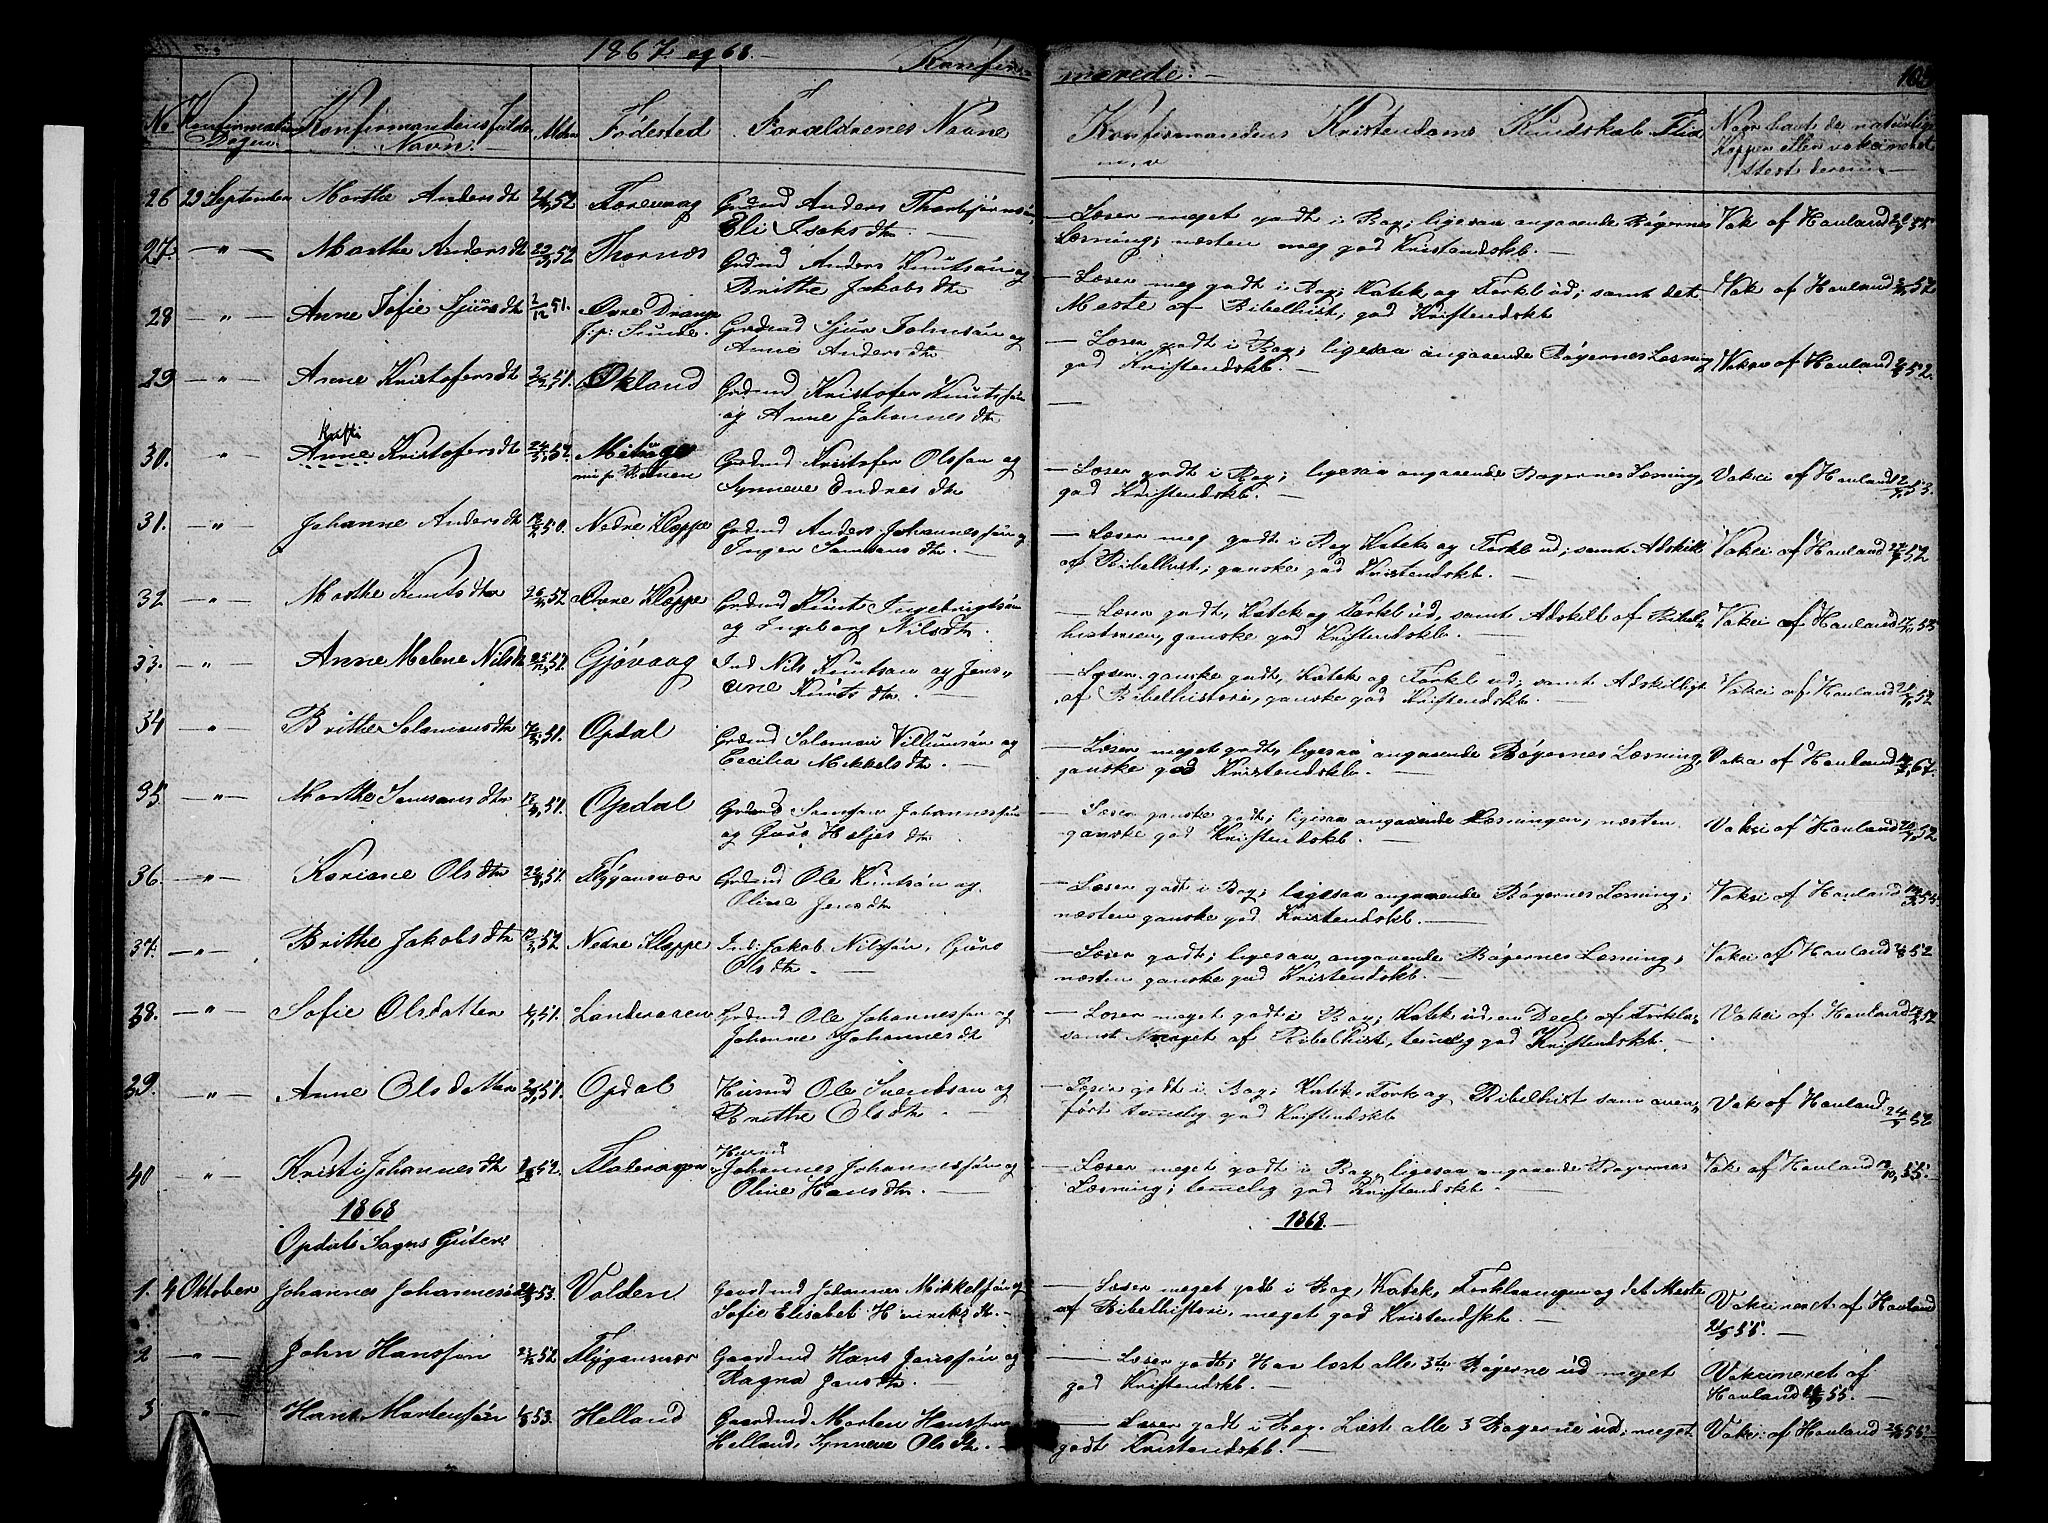 1867 og 68.
Konfir-
merede.
No
Konfirmations
Dagen
Konfirmandens fulde
Navn.
Alder
Fødested
Forældrenes Navne
Konfirmandens Kristendoms Kundskab Flid
Naar havt de naturlige
Kopper eller vakcineret
26 29 September Marthe Andersdtr 52 Færevaag Grdmd Anders Thorbjørnsøn
Eli Isaksdtr. —
— Læser meget godt i Bog; ligesaa angaaende Bøgernes
Læsning; næsten meg god Kristendskb. —
Vak af Havland 55
27. — " — Marthe Andersdt 52 Thornæs Grdmd Anders Knutsøn og
Brithe Jakobsdtr
— Læser meg godt i Bog; Katek og Forkl ud; samt det
Meste af Bibelhist; god Kristendskb
Vak af Havland 52
28 — " — Anne Sofie Sjursdtr 2/12 51. Øvre Drange
Grdmd Sjur Johnsøn og
Anne Andersdtr
— Læser godt i Bog; ligesaa angaaende Bøgernes Læsning
god Kristendskb. —
Vakci af Havland 52.
29 — " — Anne Kristofersdt 51. Økland Grdmd Kristofer Knutsøn
og Anne Johannesdtr
30. " Kristi
Anne Kristofersdt 52. Grdmd Kristofer Olsøn og
Synneve Endresdtr
— Læser godt i Bog; ligesaa angaaende Bøgernes Læsning,
god Kristendskb. —
Vakci af Havland 53.
31. — " — Johanne Andersdt 50. Nedre Kleppe Grdmd Anders Johannessøn og
Inger Samsonsdtr. —
— Læser meg godt i Bog Katek og Forkl ud; samt Adskill
af Bibelhist; ganske god Kristendskb. —
Vakci af Havland 52
32 — " — Marthe Knutsdtr 52 Øvre Kleppe Grdmd Knut Ingebrigtsøn
og Ingeborg Nilsdtr.
— Læser godt, Katek og Forkl ud, samt Adskill af Bibel-
historien, ganske god Kristendskb. —
Vakci af Havland 53
33. — " — Anne Malene Nilsdtr 52. Gjøvaag Ind Nils Knutsøn og Jens-
ine Knutsdtr. —
— Læser ganske godt, Katek og Forkl ud; samt Adskilligt
af Bibelhistorie, ganske god Kristendskb. —
Vakci af Havland 52
34 — " — Brithe Salomonsdtr 51. Opdal Grdmd Salomon Villumsøn og
Cecilia Mikkelsdtr. —
— Læser meget godt, ligesaa angaaende Bøgernes Læsning,
ganske god Kristendskb. —
Vakci af Havland 67.
35 — " — Marthe Samsonsdtr 51. Opdal Grdmd Samson Johannessøn
og Guro Heljesdtr
— Læser ganske godt; ligesaa angaaende Læsningen; næsten
ganske god Kristendskb. —
Vakci af Havland 52
36. — " — Kariane Olsdtr 51. Flygansvær Grdmd Ole Knutsøn og
Oline Jensdtr
— Læser godt i Bog; ligesaa angaaende Bøgernes Læsning;
næsten ganske god Kristendskb. —
Vakci af Havland 54
37. — " — Brithe Jakobsdtr 52 Nedre Kleppe Ind: Jakob Nilssøn, Guro
Olsdtr. —
— Læser godt; ligesaa angaaende Bøgernes Læsning,
næsten ganske god Kristendskb.
Vakci af Havland 52
38. — " — Sofie Olsdatter 51. Landeraaen Grdmd Ole Johannessøn og
Johanne Johannesdt
— Læser meget godt i Bog; Katek ud, en Deel af Forkla-
samt Noget af Bibelhist, temelig god Kristendskb. —
Vakci af Havland 52
39. — " — Anne Olsdatter 51. Opdal Husmd Ole Svendsøn og
Brithe Olsdtr. —
— Læser godt i Bog; Katek Fork og Bibelhist som oven-
ført temelig god Kristendskb. —
Vak af Havland 24/9 52
40 " Kristi Johannesdtr 52. Flateraaker Husmd
Johannes Johannessøn og
Oline Hansdtr. —
— Læser meget godt i Bog, ligesaa angaaende Bøgernes
Læsning; temelig god Kristendskb. —
Vak af Havland 55.
1868
Opdals Sogns Gutter
1868.
1. 4 Oktober Johannes Johannessøn 53. Valden Gaardmd Johannes Mikkelsøn og
Sofie Elisabet Henriksdtr. —
— Læser meget godt i Bog, Katek, Forklaaringen og det Meste
af Bibelhistori, meget god Kristendskb. —
Vakcineret af Havland
55. —
2 — " — John Hanssøn 52 Flygansvær Gaardmd Hans Jonssøn og
Ragna Jonsdtr.
— Læser godt; Har læst alle 3de Bøgerne ud meget
god Kristendskb. —
Vakcineret af
Havland 55. —
3 — " — Hans Martensøn 53. Helland Gaardmd Marten Hanssøn
Helland, Synneve Olsdtr. —
— Læser godt i Bog. Læst alle 3 Bøgerne ud; meget
godt Kristendskb. —
Vakci: af Havland 55